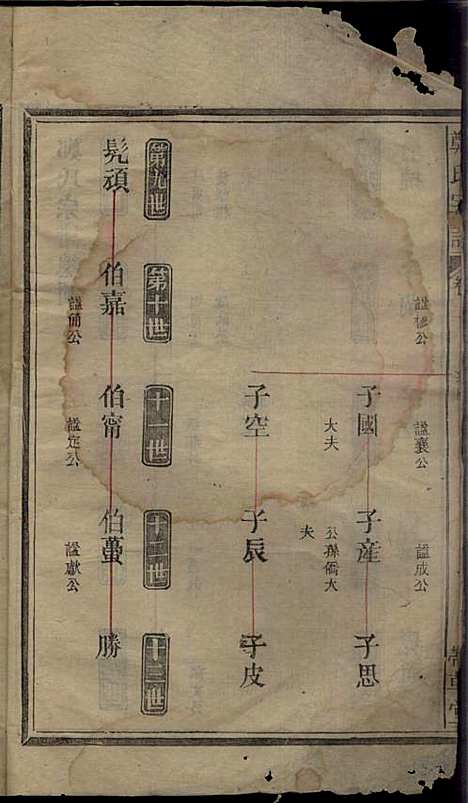 鄭氏宗譜
卷
諡襄公
諡成公
子國
大夫
子產
公孫僑大夫
子思
子空
子辰
子皮
第九世
第十世
十一世
十二世
十三世
髡頑
伯嘉
諡簡公
伯甯
諡定公
伯蠆
諡獻公
勝